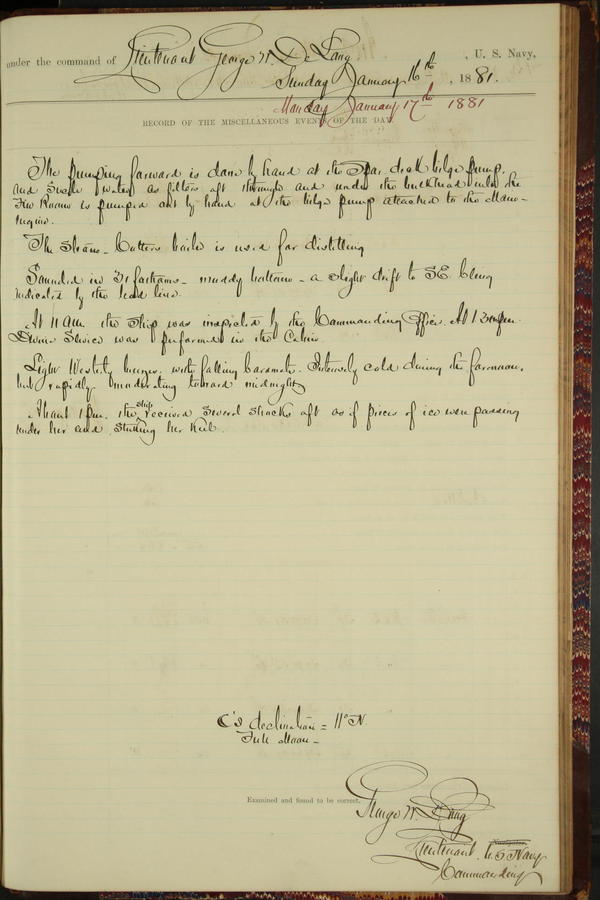 under the command of Lieutenant George W. De Long , U. S. Navy,
Sunday January 16th , 1881.
Monday January 17th 1881
RECORD OF THE MISCELLANEOUS EVENTS OF THE DAY.
The pumping forward is done by hand at the Spar deck bilge pump,
and such water as filters aft through and under the bulkhead into the
Fire Room is pumped out by hand at the bilge pump attached to the Main-
engine.
The Steam-Cutters boiler is used for distilling
Sounded in 31 fathoms - muddy bottom - a slight drift to SE being
indicated by the lead line.
At 11 am the Ship was inspected by the Commanding Officer. At 1 pm
Divine Service was performed in the Cabin
Light Westerly breezes with falling barometer. Intensely cold during the forenoon,
but rapidly moderating toward midnight
About 1 pm. the ship received several shocks aft as if pieces of ice were passing
under her and striking her keel.
declination = 11° N
Full Moon -
Examined and found to be correct.
George W. De Long
Lieutenant U.S. Navy
Commanding